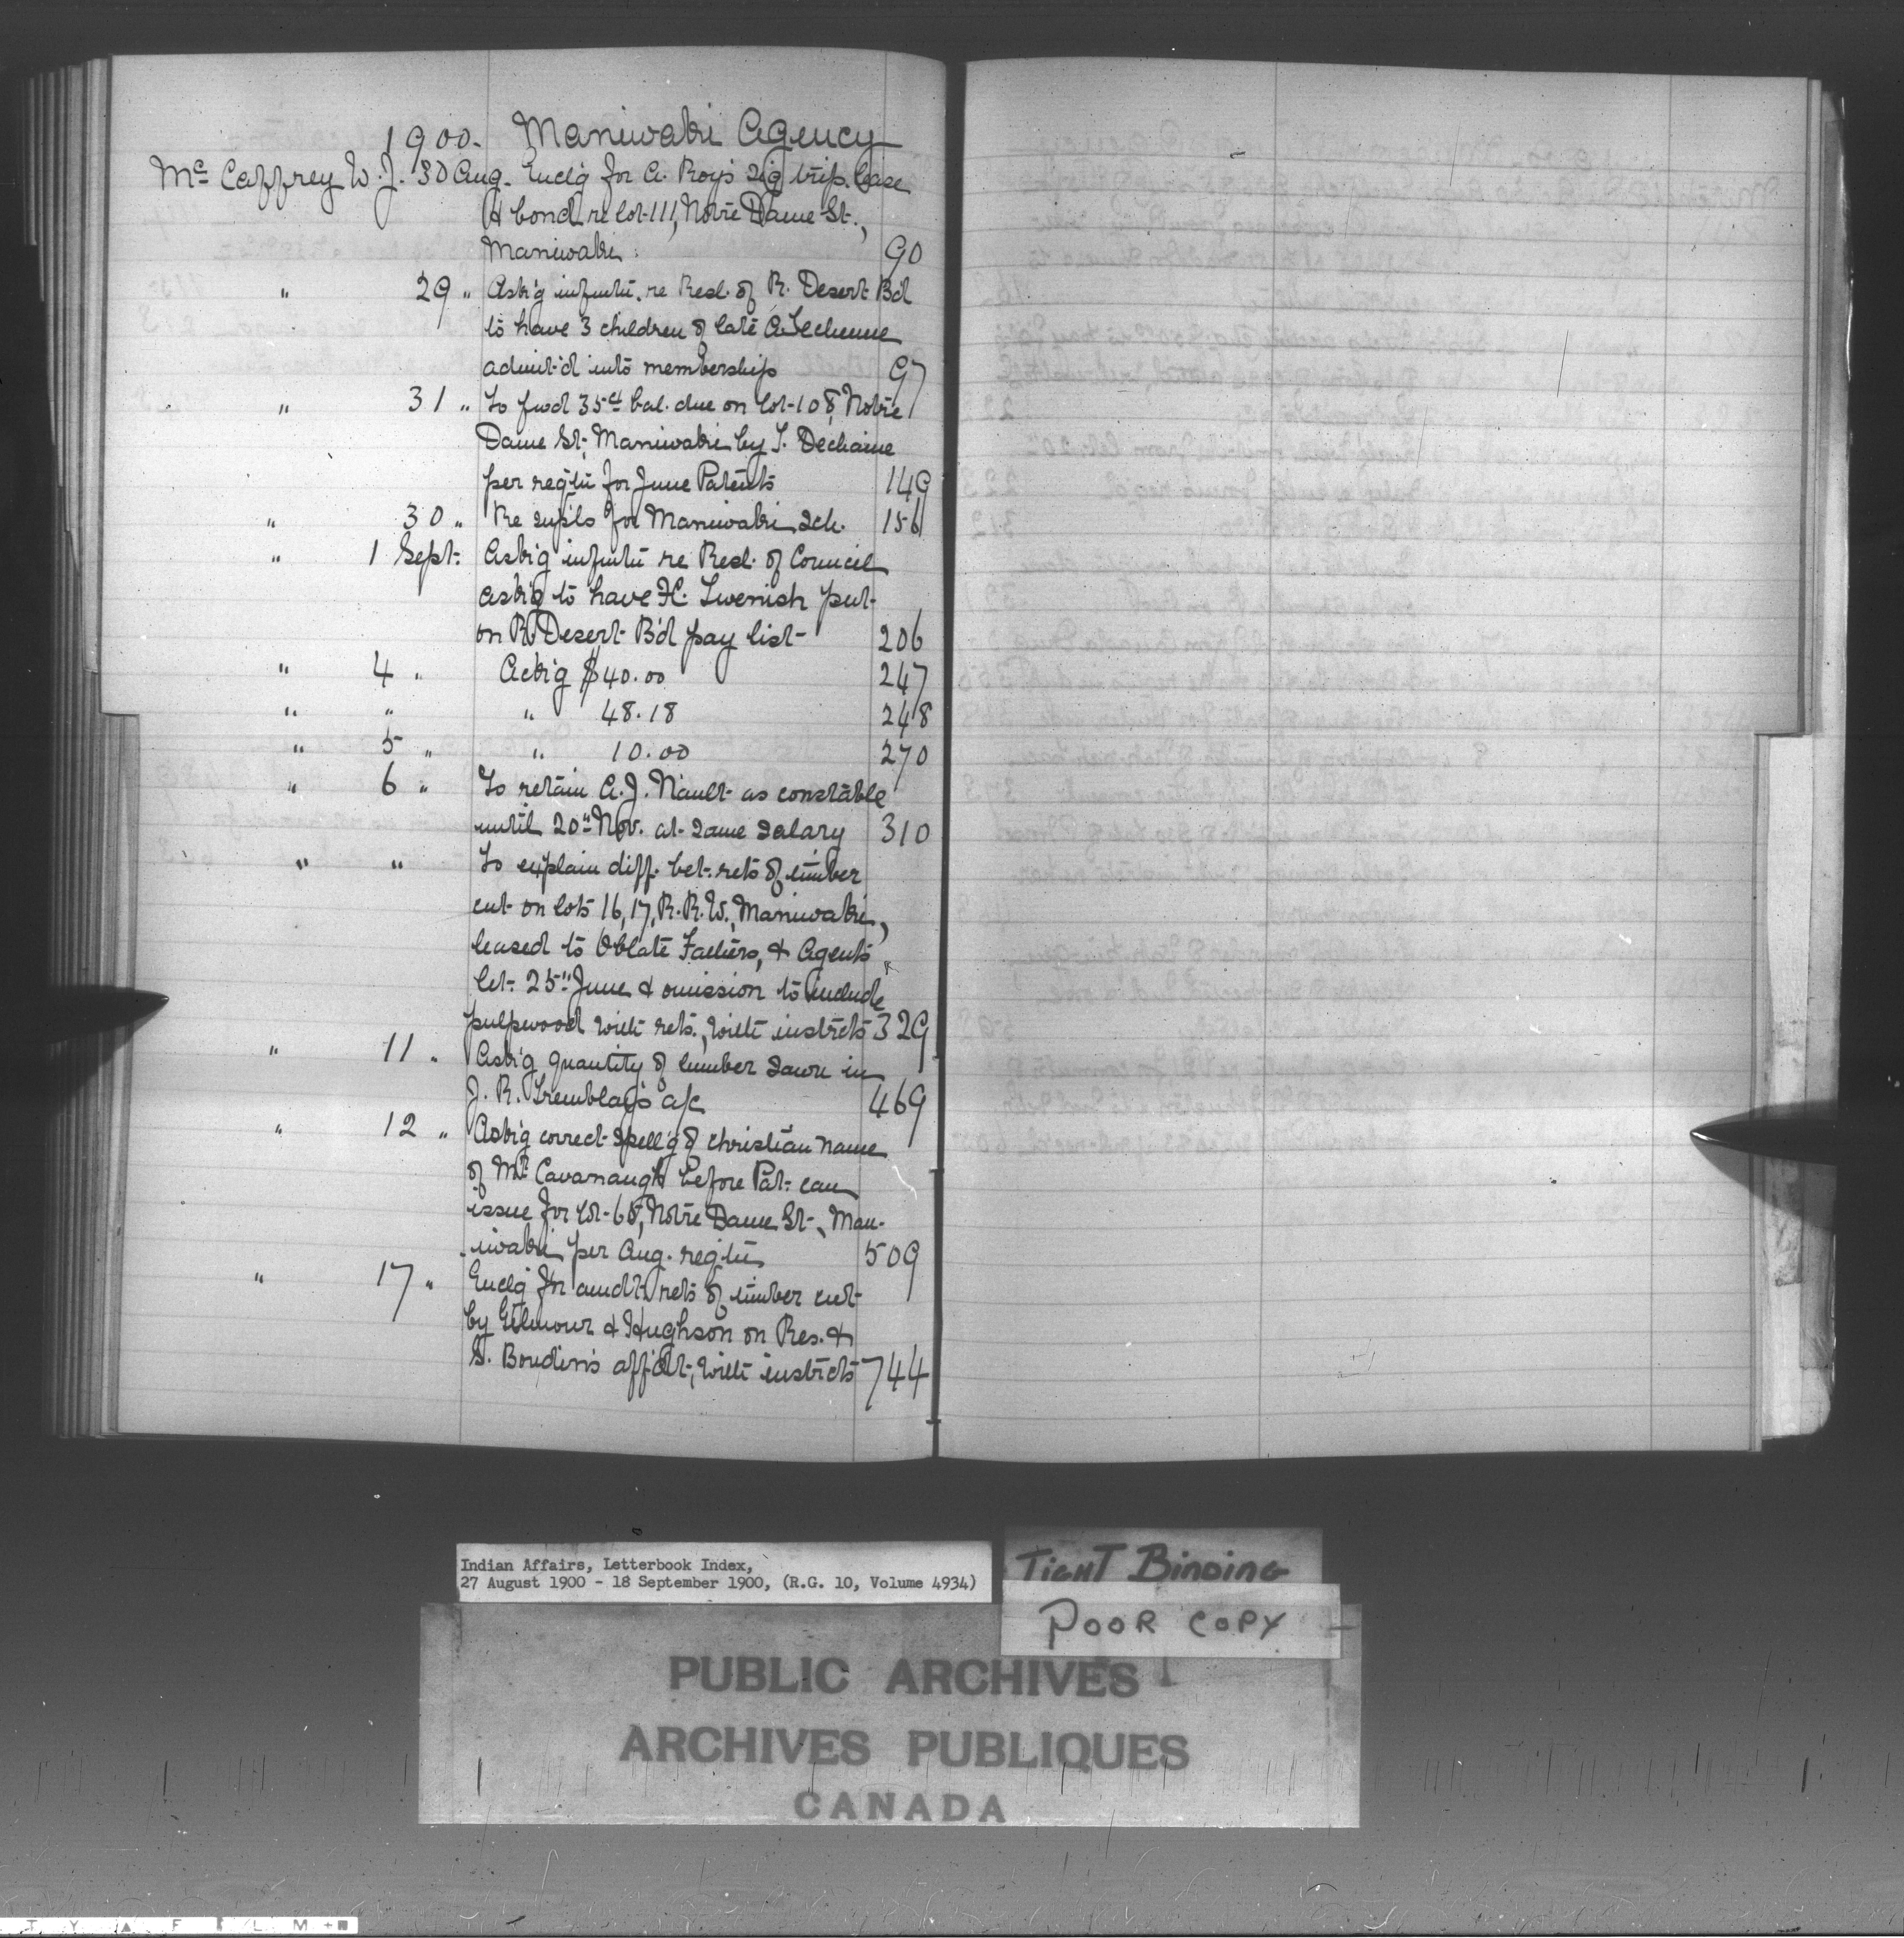 1900. Maniwaki Agency
McCaffrey W. J. 30 Aug. Encl'g for A. Roy's sig trip. lease
& bond re lot 111, Notre Dame St.,
Maniwaki. 90
" 29 " Ask'g infmtn. re Resl. of R. Desert B'd
to have 3 children of late A.
admit'd into membership 97
" 31 " To fwd 35¢ bal. due on lot 108, Notre
Dame St., Maniwaki by T. Dechaine
per regtn for June Patents 149
" 30 " Re suppls for Maniwaki Sch. 156
" 1 Sept. Ask'g infmtn re Resl. of Council
ask'g to have H. Twenish put
on R. Desert B'd pay list 206
" 4 " Ack'g $40.00 247
" " " 48.18 248
" 5 " " 10.00 270
" 6 " To retain A. J. Nault as constable
until 20" Nov. at same salary 310
" " To explain diff. bet. rets of timber
cut on lots 16, 17, R.R.W., Maniwaki,
leased to Oblate Fathers, & Agents
let. 25" June & omission to include
pulpwood with rets., with instrcts 329
" 11 " Ask'g quantity of lumber sawn in
J. R. Tremblay's a/c 469
" 12 " Ask'g correct spell'g of christian name
of Mr Cavanaugh before Pat. can
issue for lot 65, Notre Dame St., Man-
iwaki per Aug. regtn 509
" 17 " Encl'g for amdt. rets of timber cut
by Gilmour & Hughson on Res. &
S. Boudin's affidt., with instrcts 744
Indian Affairs, Letterbook Index,
27 August 1900 - 18 September 1900, (R.G. 10, Volume 4934)
TIGHT BINDING
POOR COPY
PUBLIC ARCHIVES
ARCHIVES PUBLIQUES
CANADA